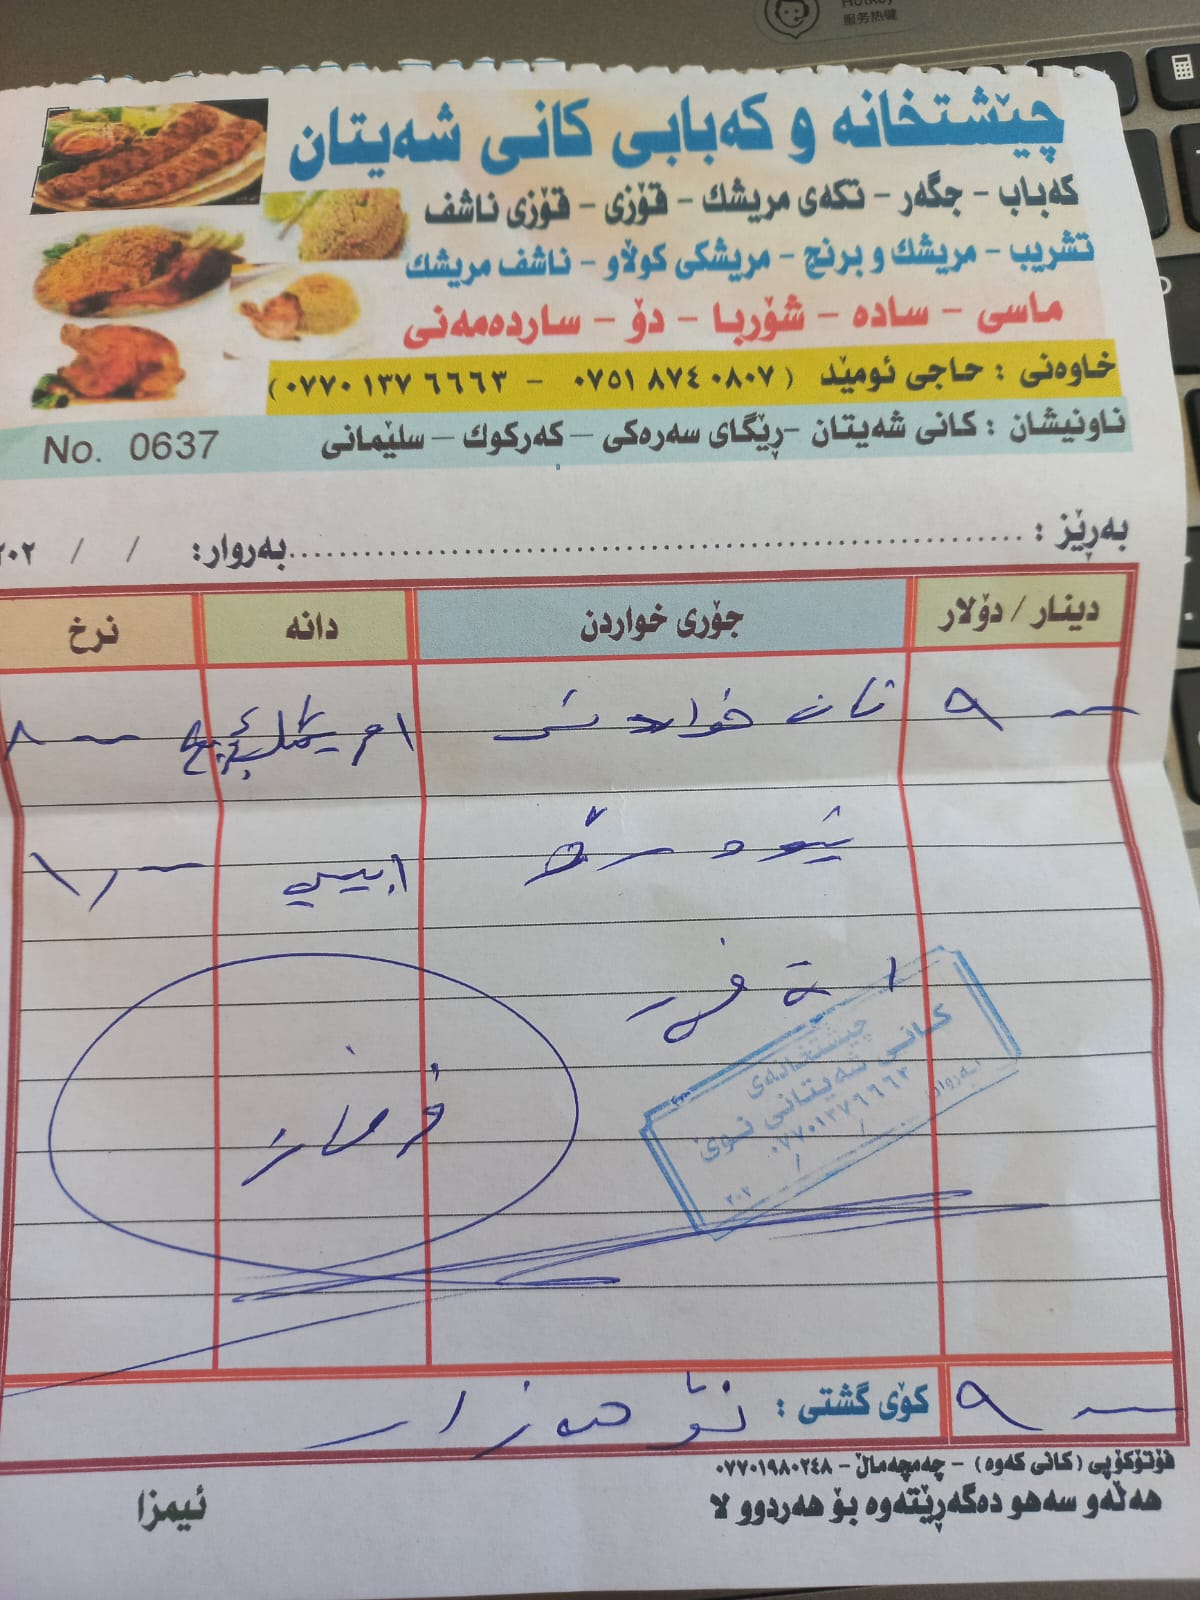 HotKey
服务热键
چێشتخانه و کەبابی کانی شەیتان
کەباب - جگەر - تکەی مریشك - قۆزی - قۆزی ناشف
تشریب - مریشك و برنج - مریشکی کوڵاو - ناشف مریشك
ماسی - ساده - شۆربا - دۆ - ساردەمەنی
خاوەنی : حاجی ئومێد ( ٠٧٥١ ٨٧٤ ٠٨٠٧ - ٠٧٧٠ ١٣٧ ٦٦٦٣)
ناونیشان : کانی شەیتان -ڕێگای سەرەکی – کەرکوك – سلێمانی
No. 0637
بەڕێز : ........................ بەروار: / / ٢٠٢
دینار / دۆلار جۆری خواردن دانه نرخ
٩ نان خواردنی ٨
١
١ نەفەر
چێشتخانەی
کانی شەیتانی نوێ
٠٧٧٠١٣٧٦٦٦٣
بەروار / / ٢٠٢
٩ کۆی گشتی : نۆ هەزار
فۆتۆکۆپی (کانی کەوه) - چەمچەماڵ - ٠٧٧٠١٩٨٠٢٤٨
هەڵەو سەهو دەگەڕێتەوە بۆ هەردوو لا
ئیمزا